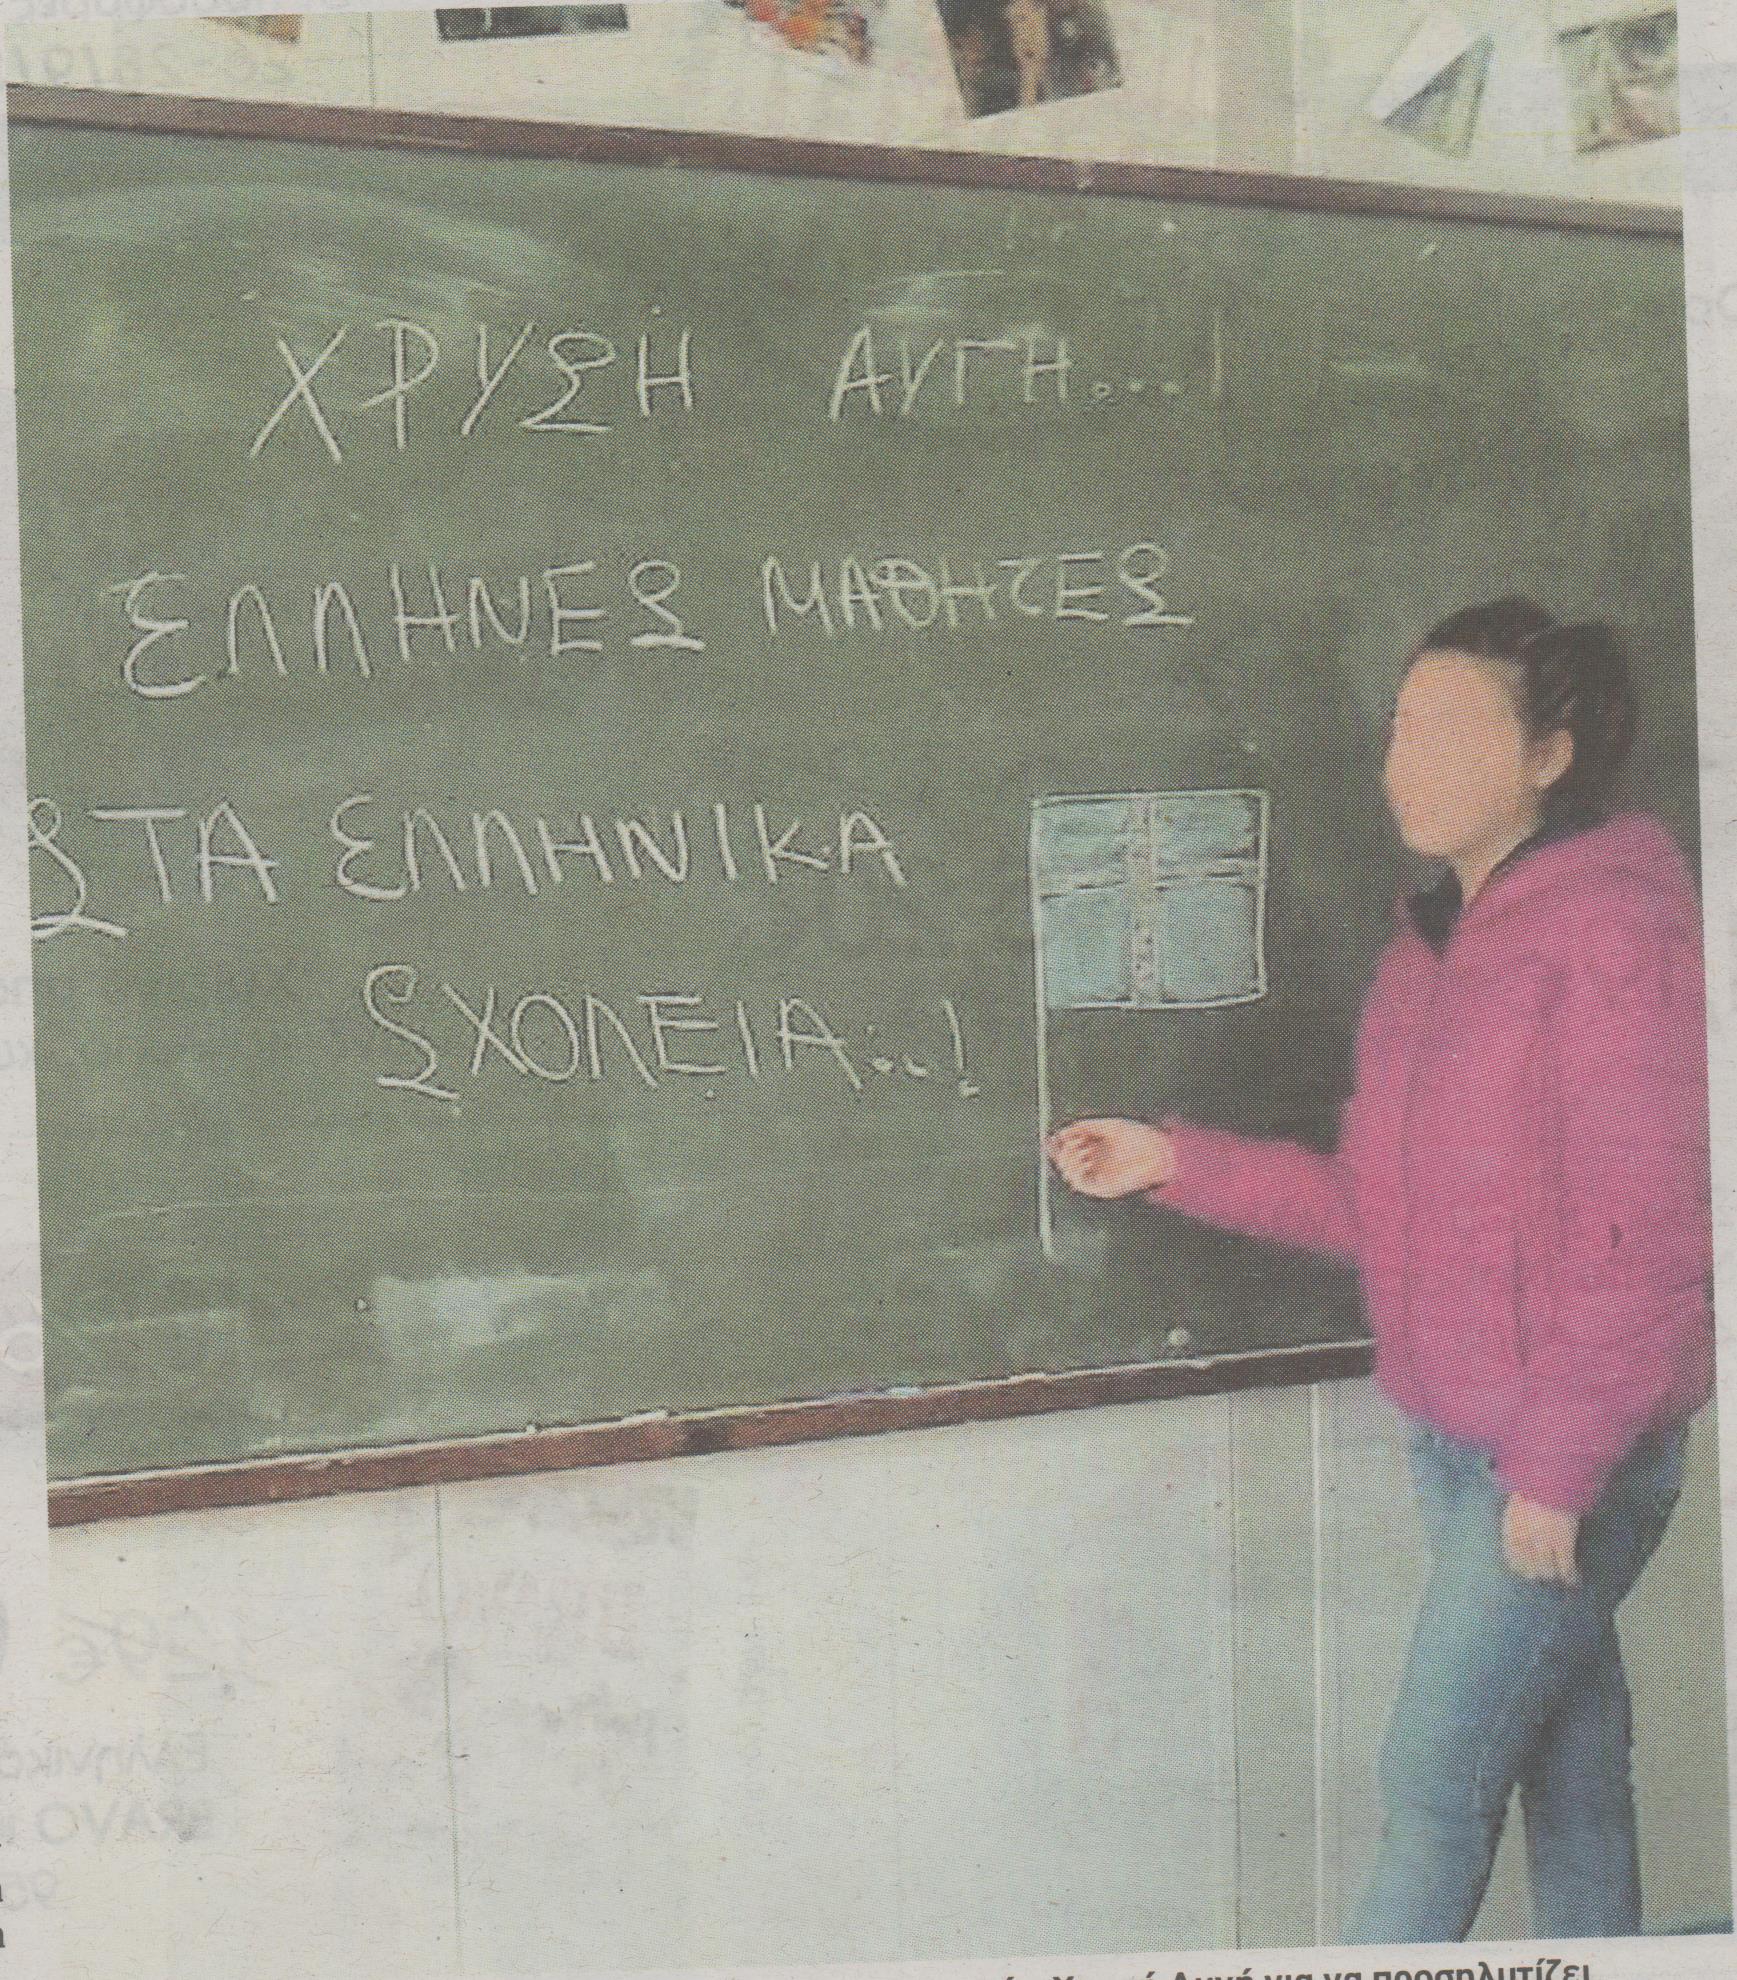 ΧΡΥΣΗ ΑΥΓΗ....!
ΕΛΛΗΝΕΣ ΜΑΘΗΤΕΣ
ΣΤΑ ΕΛΛΗΝΙΚΑ
ΣΧΟΛΕΙΑ...!
Χρυσή Αυγή για να προσηλυτίζει